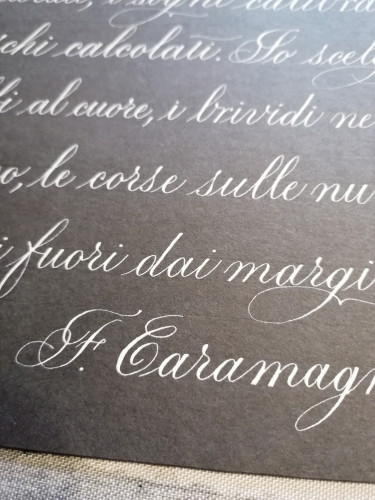 i sogni
chi calcolati. Io scel
al cuore, i brividi ne
o, le corse sulle nu
i fuori dai margi
F. Caramagn